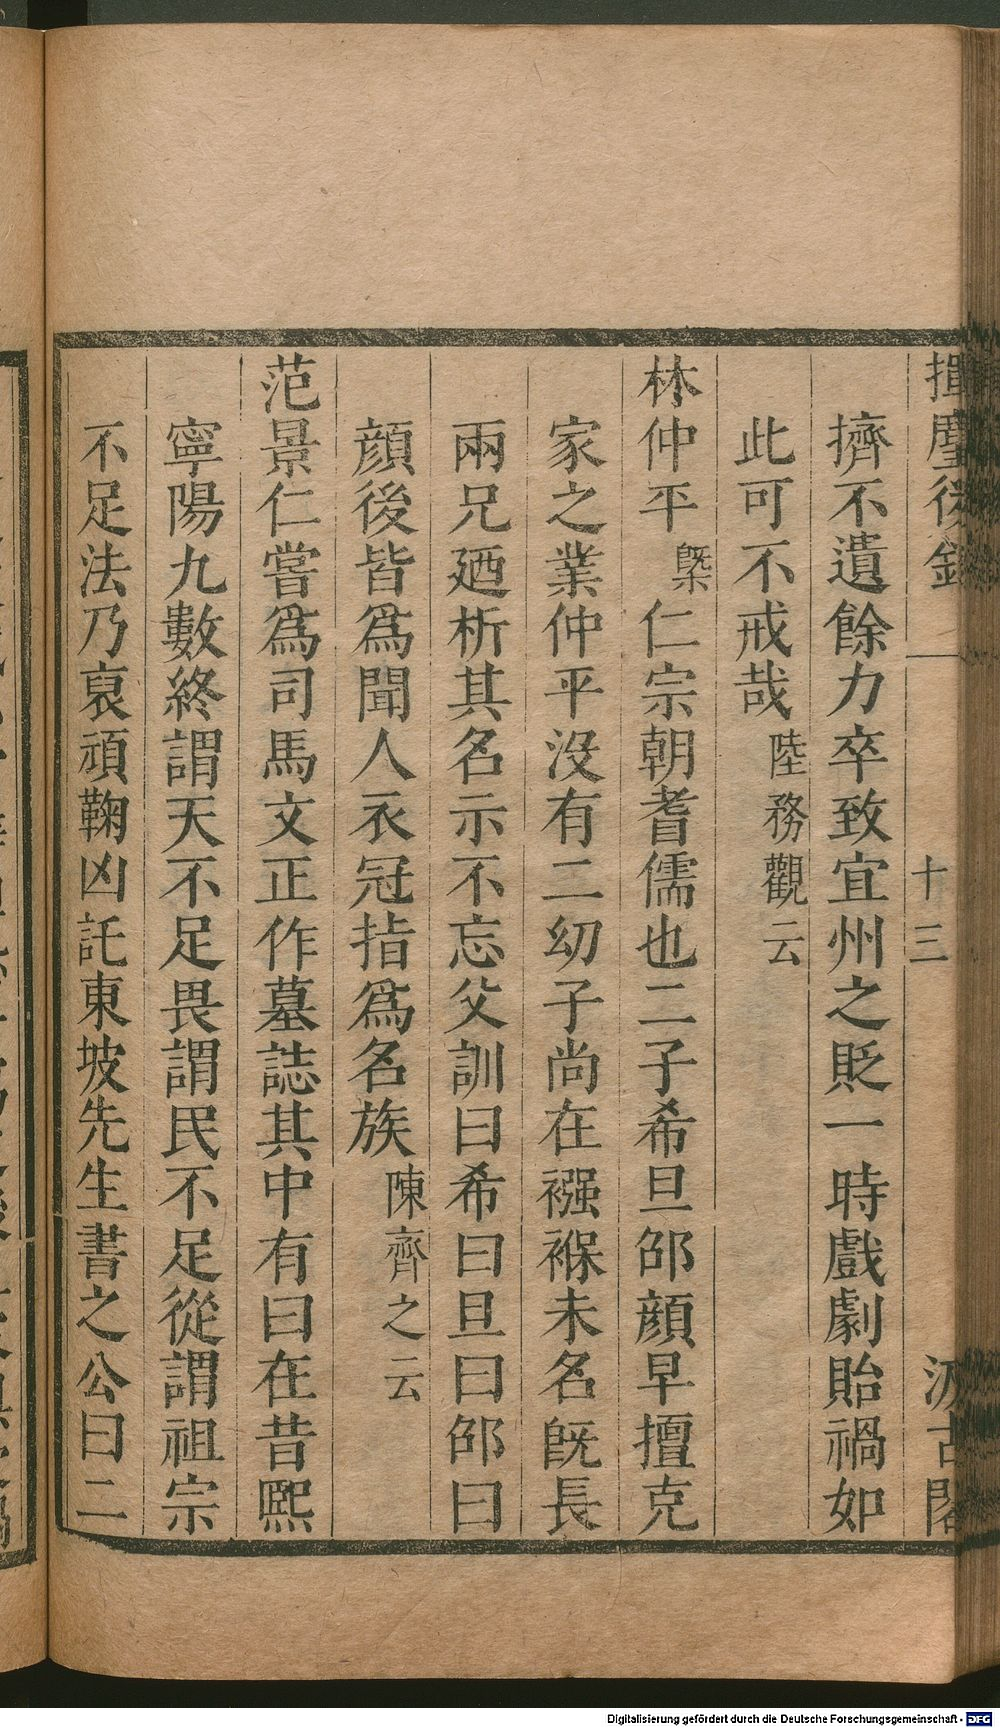 揮麈後錄 十三 汲古閣
擠不遺餘力卒致宜州之貶一時戲劇貽禍如
此可不戒哉陸務觀云
林仲平槩仁宗朝耆儒也二子希旦邵顔早擅克
家之業仲平沒有二幼子尚在襁褓未名旣長
兩兄廼析其名示不忘父訓曰希曰旦曰邵曰
顔後皆爲聞人衣冠指爲名族陳齊之云
范景仁嘗爲司馬文正作墓誌其中有曰在昔熙
寧陽九數終謂天不足畏謂民不足從謂祖宗
不足法乃裒頑鞠凶託東坡先生書之公曰二
Digitalisierung gefördert durch die Deutsche Forschungsgemeinschaft - DFG